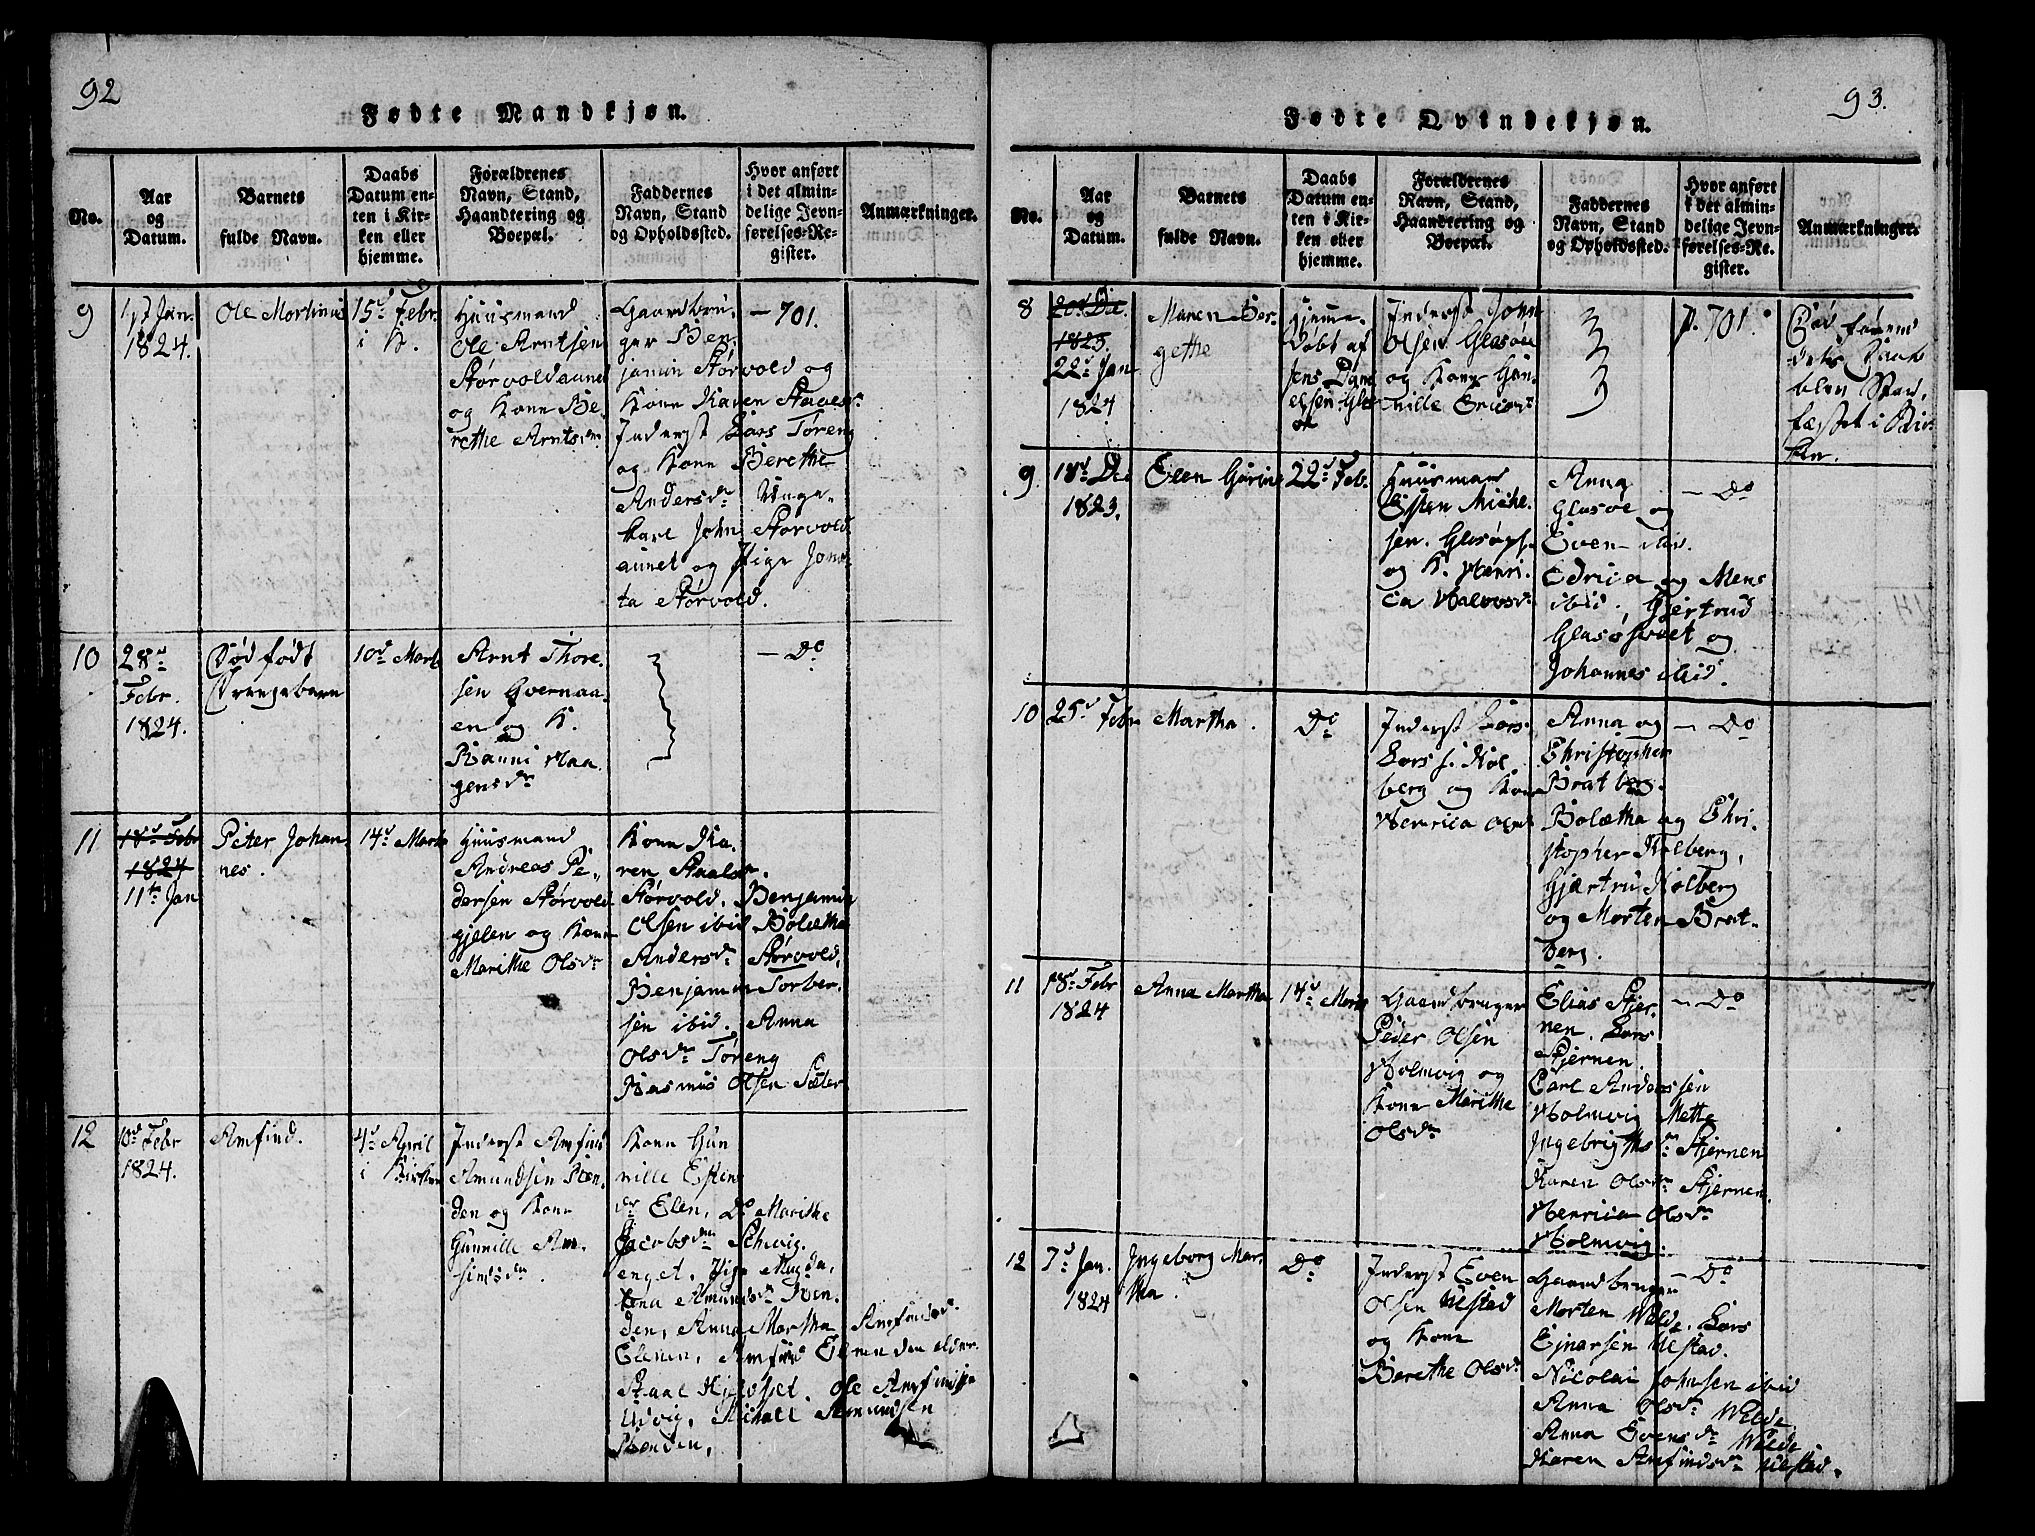 92
Fødte Mandkjøn.
No.
Aar
og
Datum.
Barnets
fulde Navn.
Daabs
Datum en-
ten i Kir-
ken eller
hjemme.
Forældrenes
Navn, Stand,
Haandtering og
Boepæl.
Faddernes
Navn, Stand
og Opholdssted.
Hvor anført
i det almin-
delige Jevn-
førelses-Re-
gister.
Anmærkninger.
9
Jan.
1824.
Ole Martinus
15d Febr.
i K.
Huusmand
Ole Arntsen
Størvoldaunet
og Kone Be-
rethe Arntsdr
Gaardbru-
ger Ben-
jamin Størvold og
Kone Karen
Inderst Lars Tøreng
og Kone Berethe
Andersdr Unge-
karl John Størvold
aunet og Pige Jone-
ta Størvold.
701.
10
28d
Febr.
1824.
Dødfødt
Drengebarn
10d Marts
Arnt Thore-
sen Qvernaa-
en og K.
Ranni Haa-
gensdr
Do
11
18d Febr
1824
11te Jan
Peter Johan-
nes.
14d Marts
Huusmand
Andreas Pe-
dersen Størvold
gjelen og Kone
Marithe Olsdr
Kone Ka-
ren
Størvold. Benjamin
Olsen ibid Bolætha
Andersdr Størvold,
Benjamin Torber-
sen ibid. Anna
Olsdr Tøreng
Rasmus Olsen Sæter
12
Febr
1824.
Amfind.
4d April
i Kirken
Inderst Amfind
Amundsen
den og Kone
Gunnille Am-
findsdr
Kone Gun
nille Esten
dr Elen, Do Marithe
Jacobsdr
enget, Pige Magda,
lena Amundsdr
den, Anna Martha Amfindsd.
Elenen, Amfind Elenen den eldre.
Ole Amfindsen
Amundsen
93.
Fødte Qvindekjøn.
No.
Aar
og
Datum.
Barnets
fulde Navn.
Daabs
Datum en-
ten i Kir-
ken eller
hjemme.
Forældrenes
Navn, Stand,
Haandtering og
Boepæl.
Faddernes
Navn, Stand
og Opholdssted.
Hvor anført
i det almin-
delige Jevn-
førelses-Re-
gister.
Anmærkninger.
8
20d De.
1823.
22d Jan
1824
Maren Ber-
gethe
Hjemme-
døbt af
Jens Dani
elsen Glas
øe
Inderst John
Olsen Glasøe
og Kone Gun-
nille Ericsdr
p. 701.
Død førend
dets Daab
blev Stad-
fæstet i Kir-
ken.
9
18d De
1823.
Elen Gurine
22d Feb.
Huusmand
Esten Mickel-
sen. Glasøe
og K. Henri-
ca
Anna
Glasøe og
Even ibid.
Edrica og Mens
ibid, Gjertrud
Glasø og
Johannes ibid.
Do
10
25d Febr
Martha.
Do
Inderst Lars
Lars s. Kol
berg og Kone
Henrica Olsd
Anna og
Christopher
Bratberg.
Bolætha og Chri-
stopher Kolberg,
Gjærtru Kolberg
og Morten Brat-
berg.
Do
11
18d Febr
1824
Anna Martha
14d Marts
Gaardbruger
Peder Olsen
Holmvig og
Kone Marithe
Olsdr
Elias Stjer-
nen. Lars
Stjernen
Carl Anderssen
Holmvig Mette
Ingebrigtsdr Stjernen
Karen Olsdr Stjernen.
Henrica Olsdr
Holmvig.
Do
12
7d Jan.
1824
Ingeborg Mar-
tha.
Do
Inderst Even
Olsen Uestad
og Kone
Berethe Olsdr
Gaardbruger
Morten Welde. Lars
Ejnarsen Uestad.
Nicolai Johnsen ibid
Anna Olsdr Welde
Anna Evensdr Welde
Karen Amfindsdr Uestad.
Do